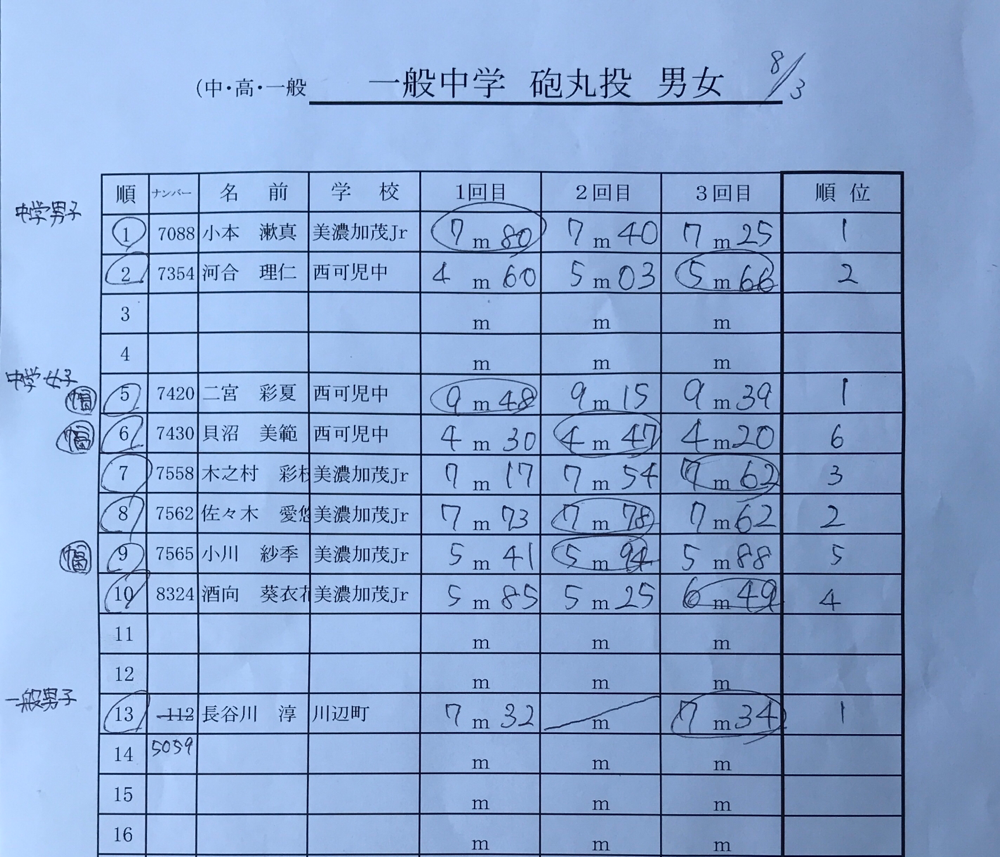 (中・高・一般 一般中学 砲丸投 男女 8/3
順 ナンバー 名 前 学 校 1回目 2回目 3回目 順 位
中学男子
1 7088 小本 漱真 美濃加茂Jr 7m80 7m40 7m25 1
2 7354 河合 理仁 西可児中 4m60 5m03 5m66 2
3 m m m
4 m m m
中学女子
幅 5 7420 二宮 彩夏 西可児中 9m48 9m15 9m39 1
幅 6 7430 貝沼 美範 西可児中 4m30 4m47 4m20 6
7 7558 木之村 彩 美濃加茂Jr 7m17 7m54 7m62 3
8 7562 佐々木 愛悠 美濃加茂Jr 7m73 7m78 7m62 2
幅 9 7565 小川 紗季 美濃加茂Jr 5m41 5m94 5m88 5
10 8324 酒向 葵衣花 美濃加茂Jr 5m85 5m25 6m49 4
11 m m m
12 m m m
一般男子
13 112 長谷川 淳 川辺町 7m32 m 7m34 1
14 5059 m m m
15 m m m
16 m m m